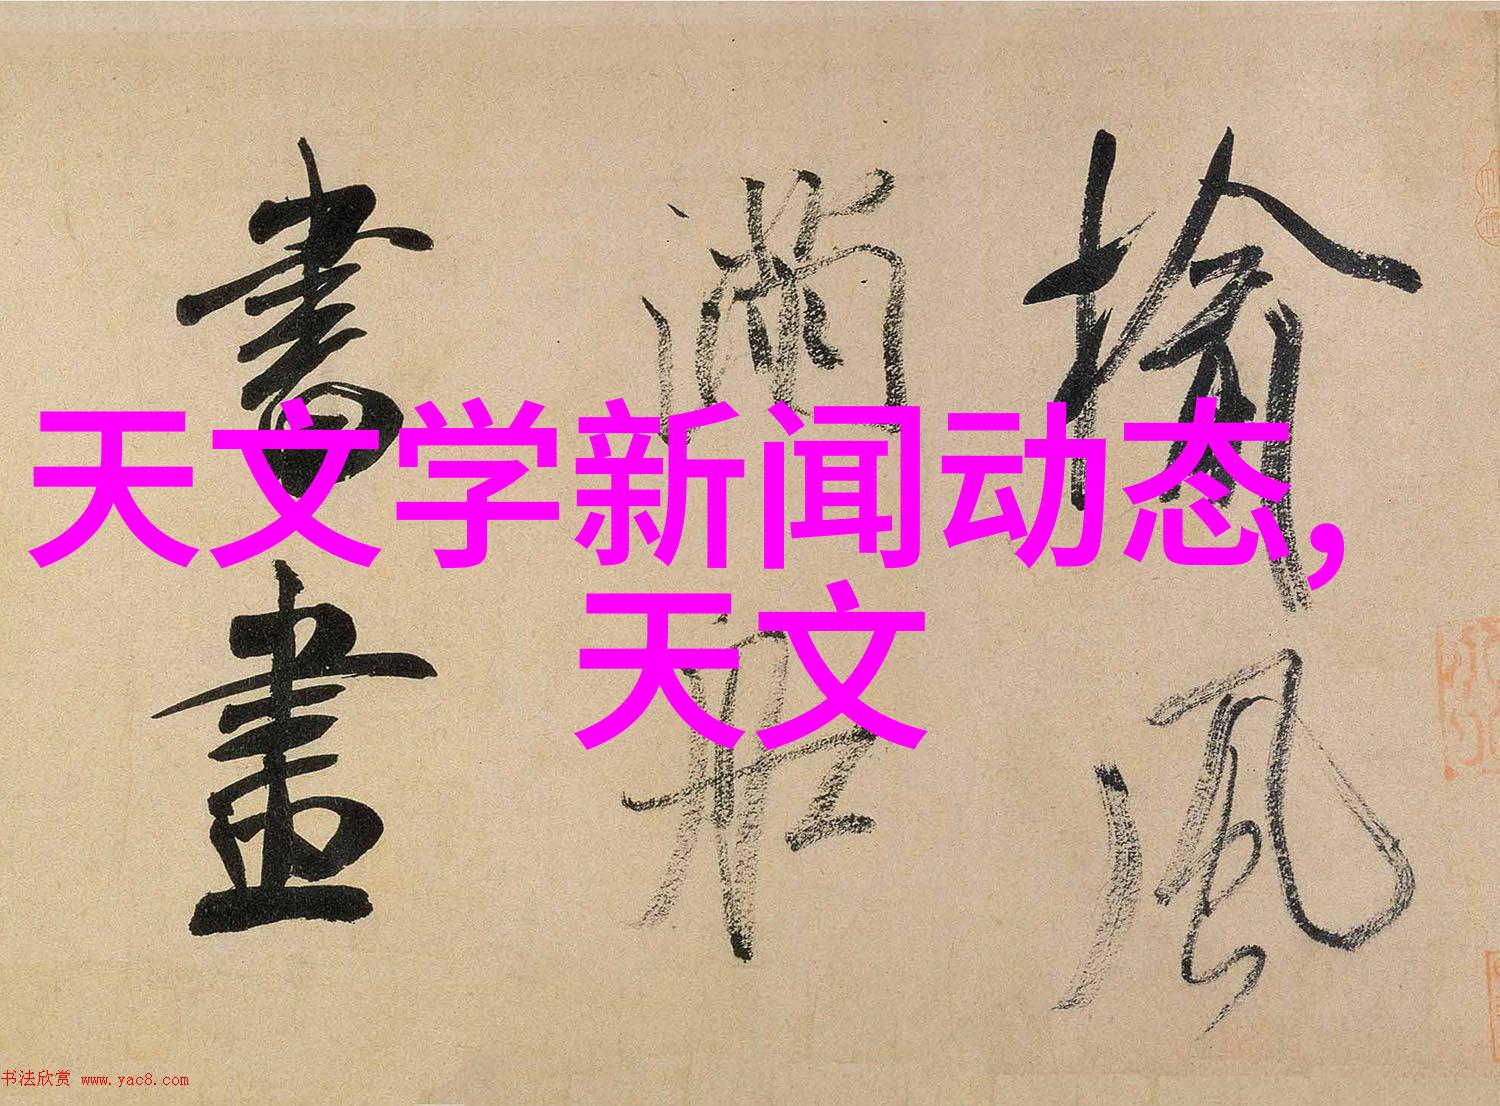 天文学新闻动态,
天文
揄風
満船
書畫
书法欣赏 www.yac8.com